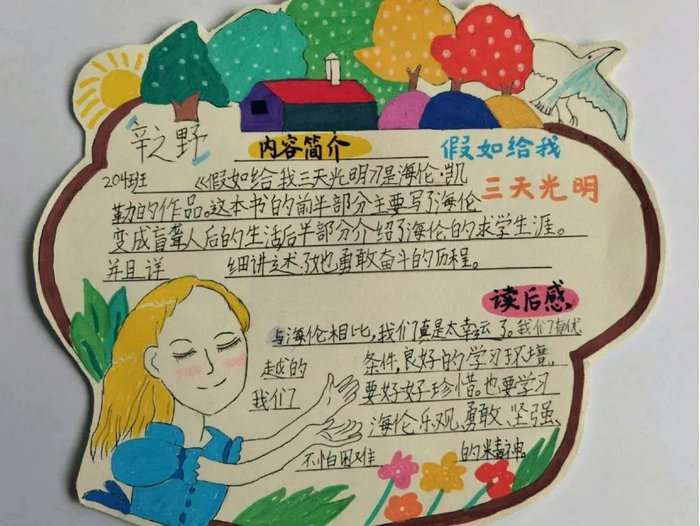 辛之野
内容简介
假如给我
三天光明
204班 《假如给我三天光明》是海伦·凯
勒的作品。这本书的前半部分主要写了海伦
变成盲聋人后的生活后半部分介绍了海伦的求学生涯。
并且详 细讲述了她勇敢奋斗的历程。
读后感
与海伦相比,我们真是太幸运了。我们有优
越的 条件,良好的学习环境。
我们 要好好珍惜。也要学习
海伦乐观、勇敢、坚强、
不怕困难 的精神。